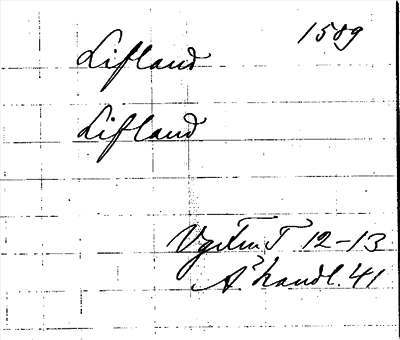 1589
Lifland
Lifland
12-13
Åhandl. 41